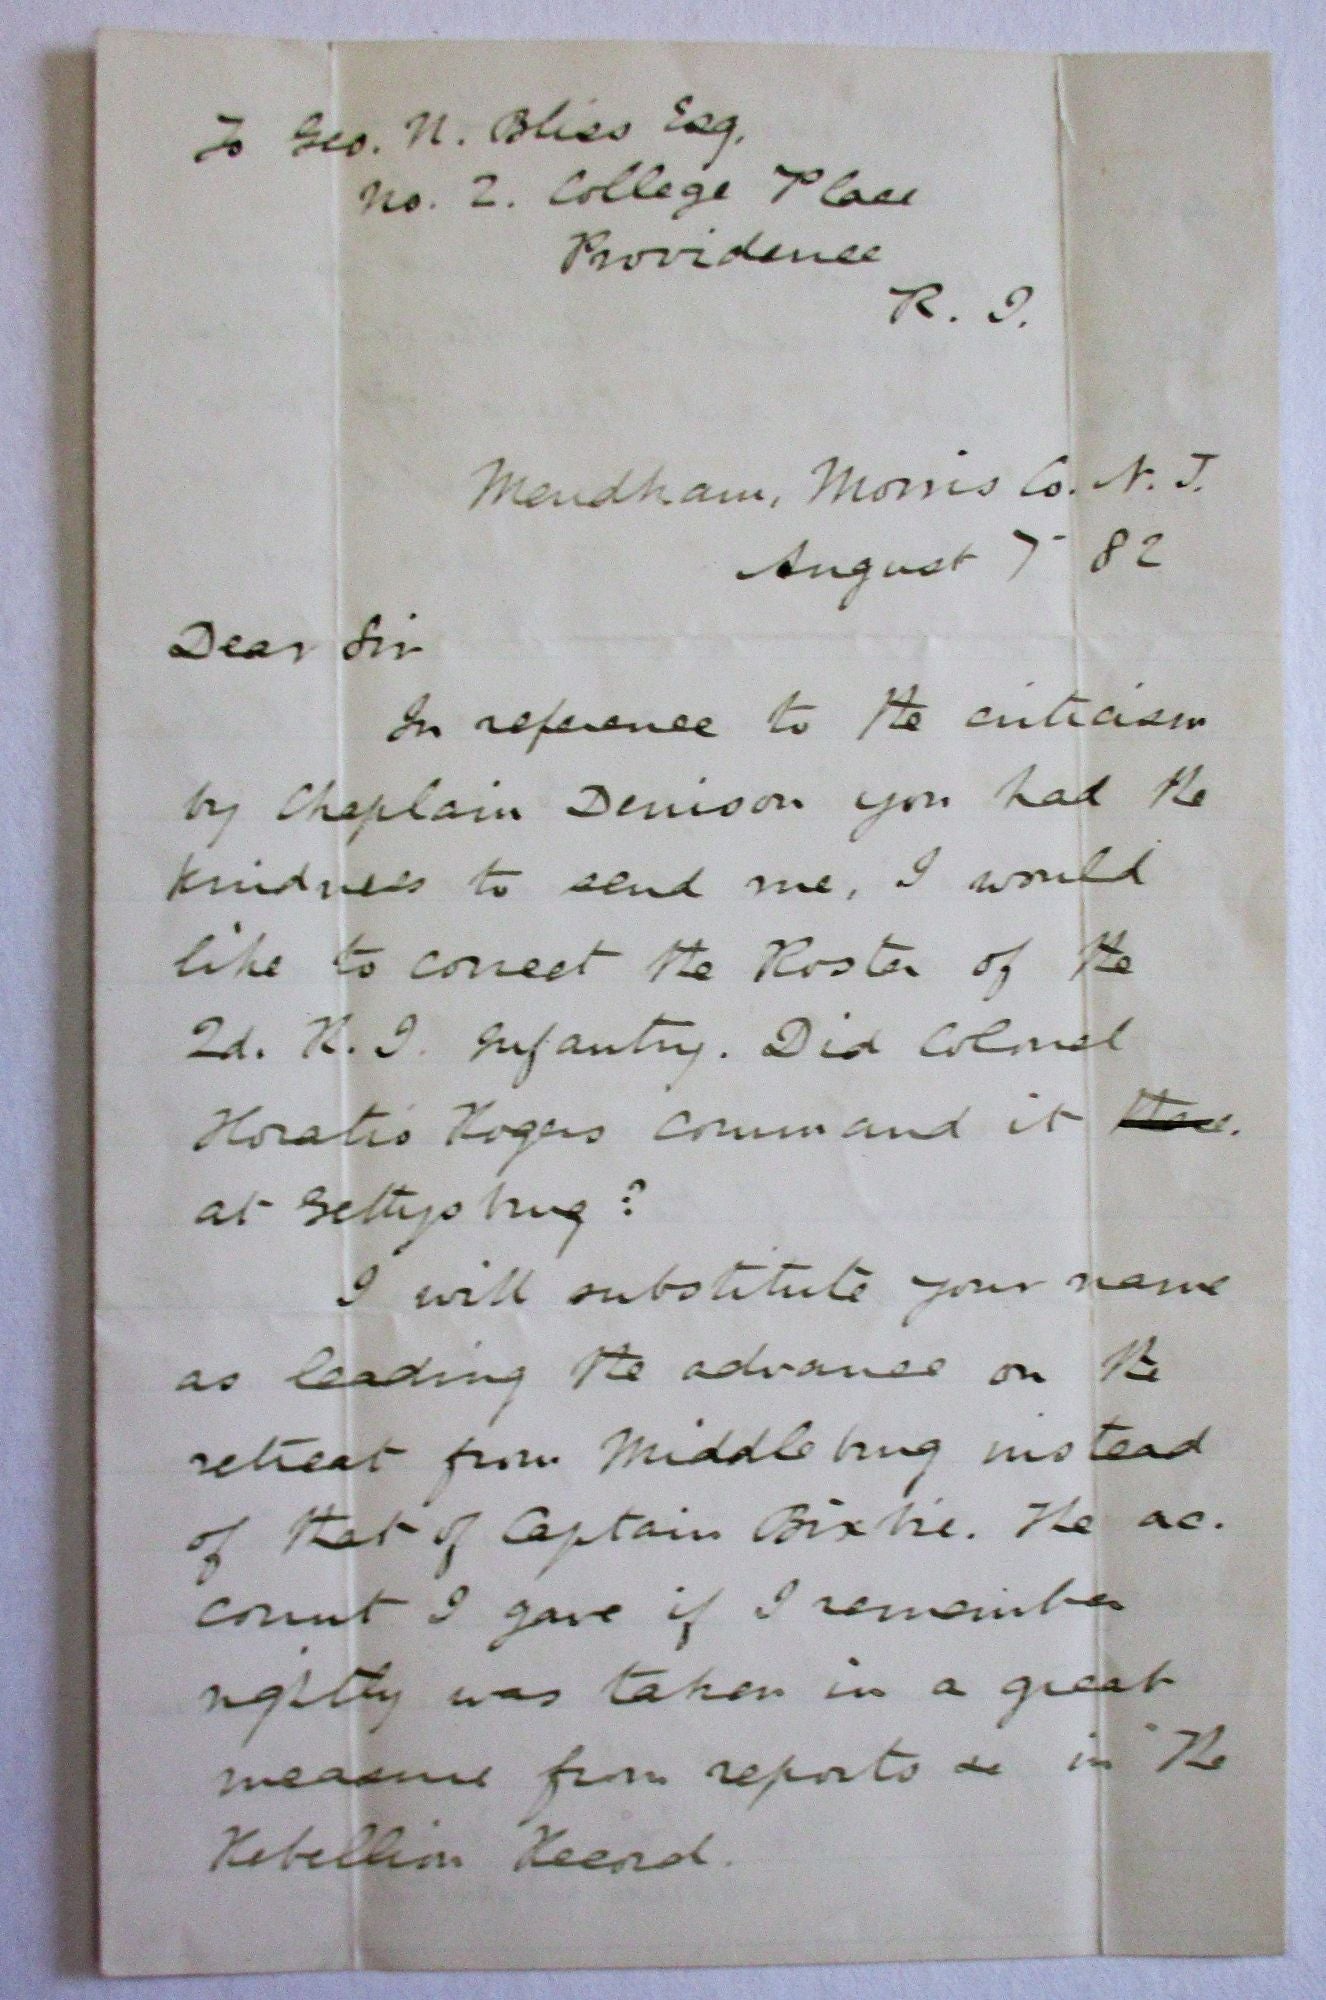 To Geo. N. Bliss Esq.
No. 2. College Place
Providence
R. I.
Mendham, Morris Co. N. J.
August 7 82
Dear Sir
In reference to the criticism
by Chaplain Denison you had the
kindness to send me, I would
like to correct the Roster of the
2d. R. I. Infantry. Did Colonel
Horatio Rogers command it
at Gettysburg?
I will substitute your name
as leading the advance on the
retreat from Middleburg instead
of that of Captain Bixbie. The ac.
count I gave if I remember
rightly was taken in a great
measure from reports &c in the
Rebellion Record.